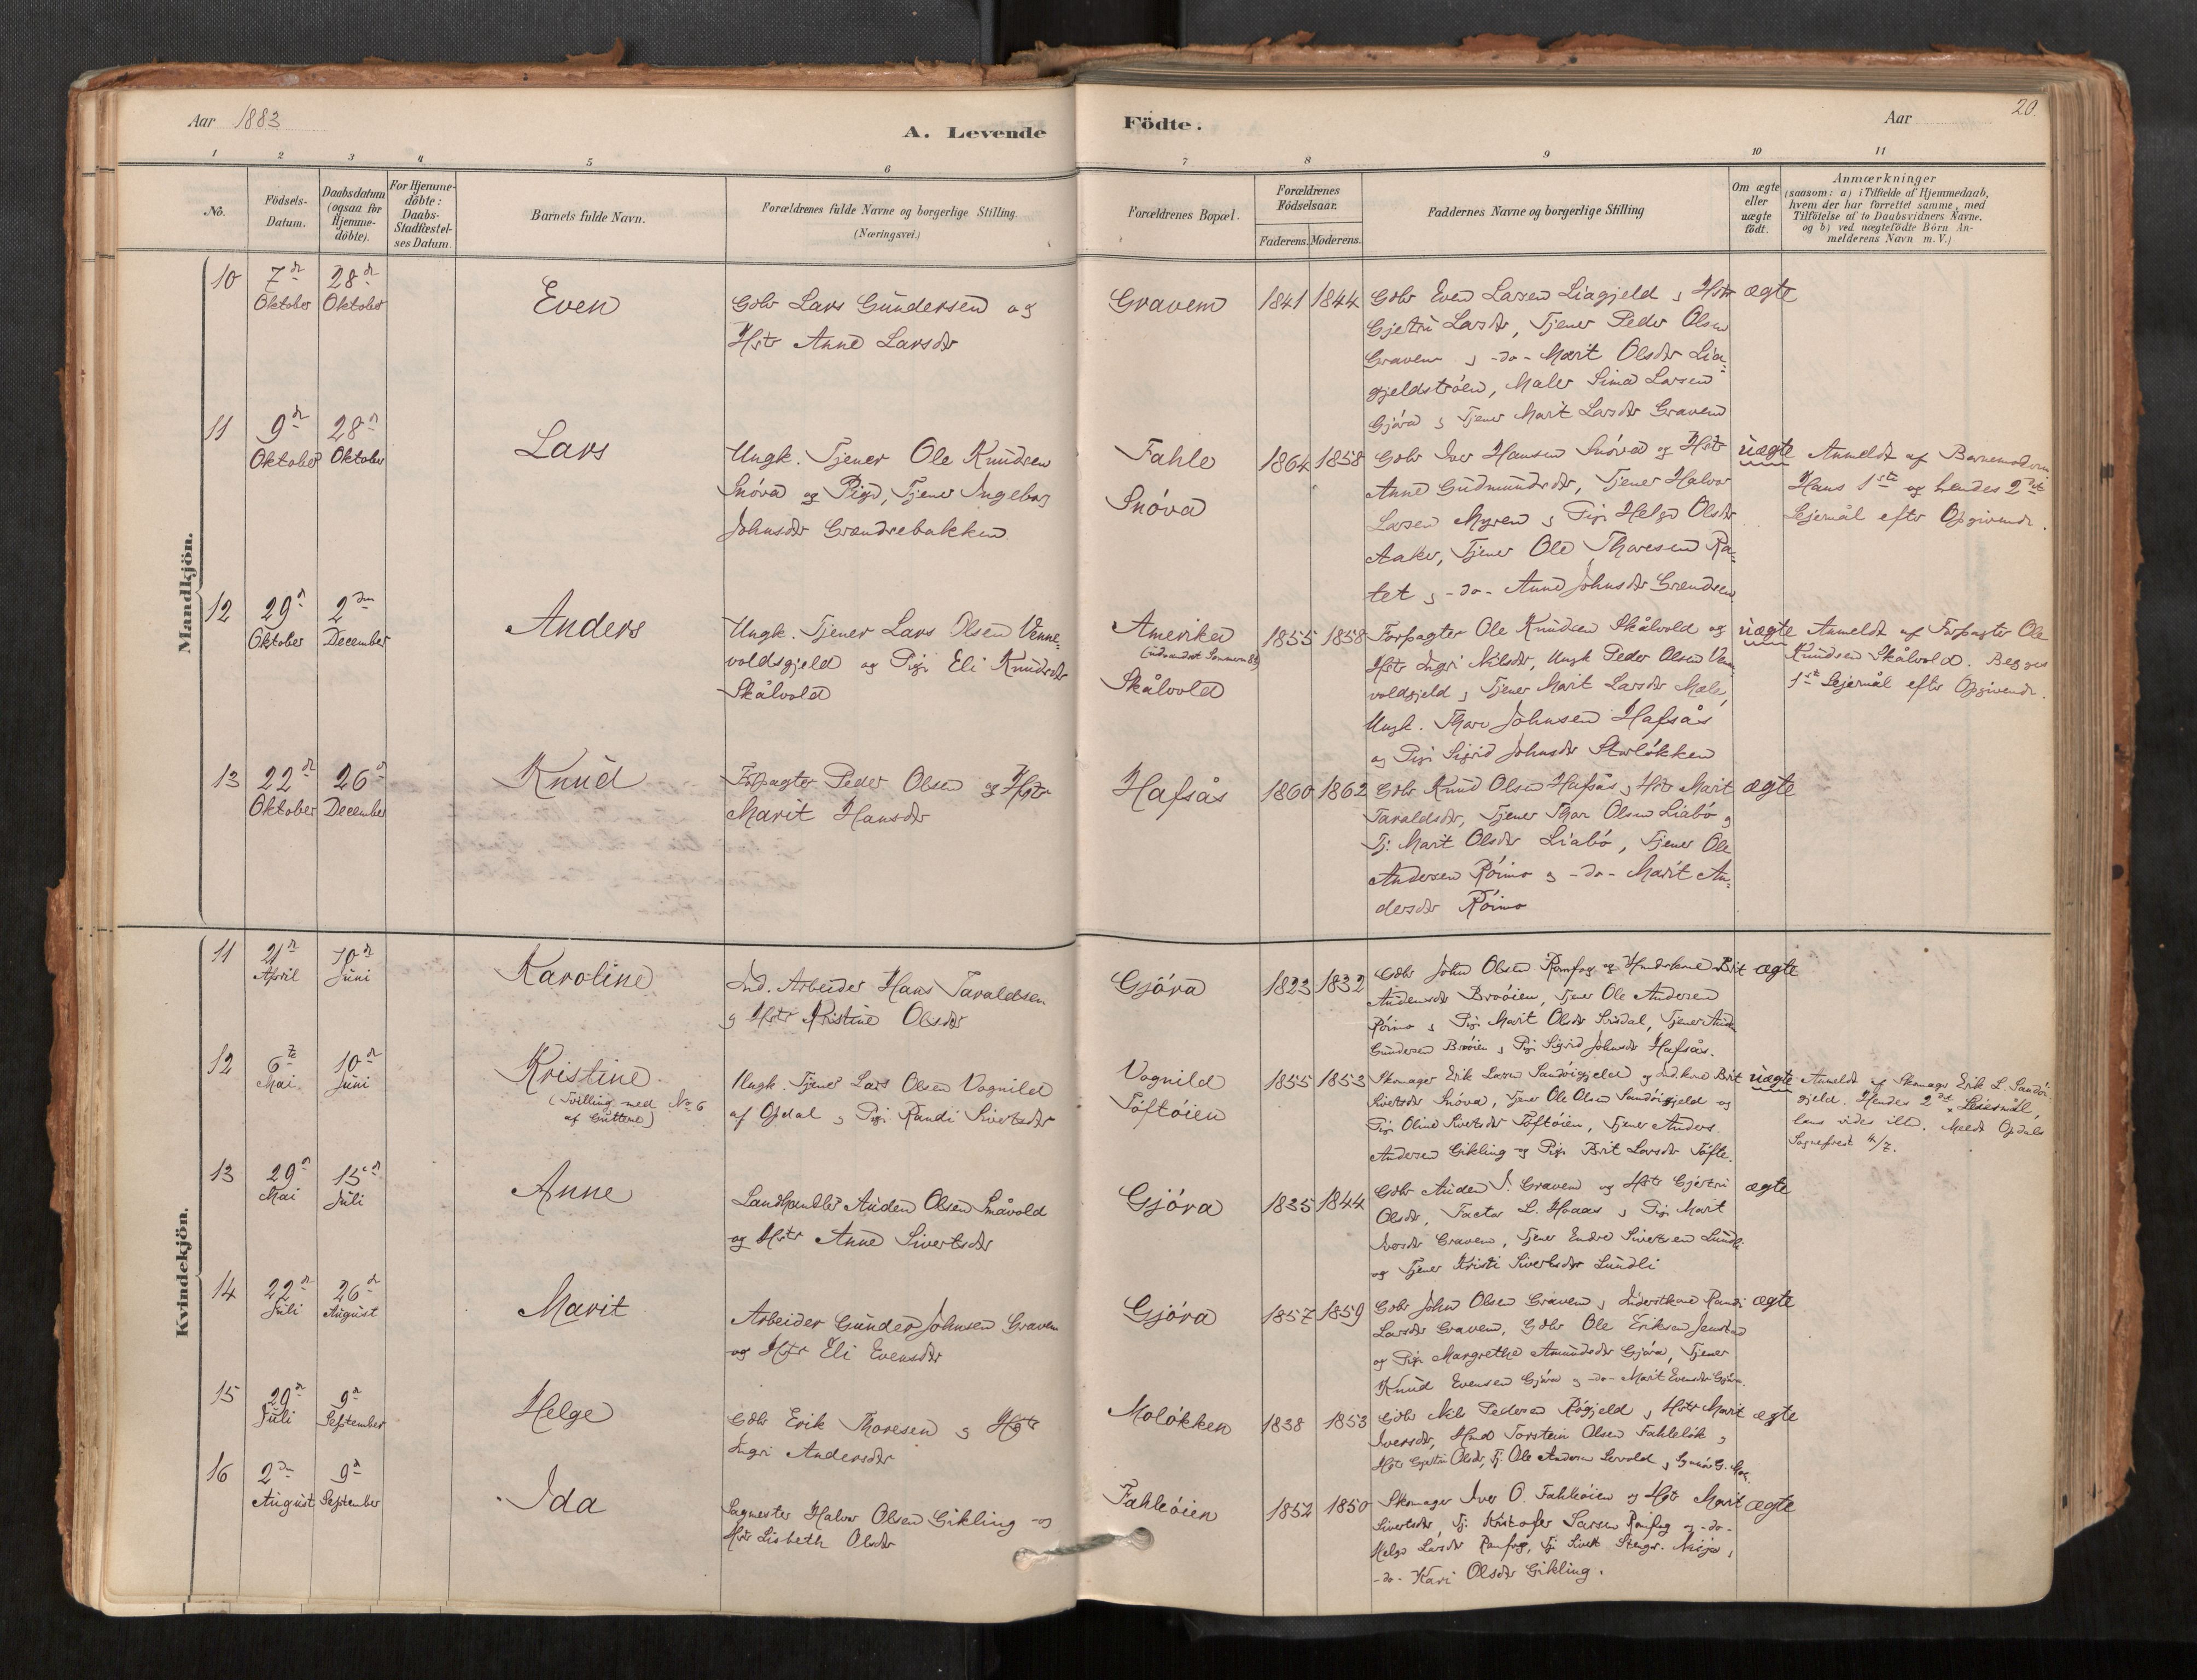 Aar 1883
A. Levende Födte.
Aar
20.
1 2 3 4 5 6 7 8 9 10 11
No.
Födsels-
Datum.
Daabsdatum
(ogsaa for
Hjemme-
döbte).
For Hjemme-
döbte:
Daabs-
Stadfæstel-
ses Datum.
Barnets fulde Navn.
Forældrenes fulde Navne og borgerlige Stilling.
(Næringsvei.)
Forældrenes Bopæl.
Forældrenes
Födselsaar.
Faderens. Moderens.
Faddernes Navne og borgerlige Stilling
Om ægte
eller
uægte
födt.
Anmærkninger
(saasom: a) i Tilfælde af Hjemmedaab,
hvem der har forrettet samme, med
Tilföielse af to Daabsvidners Navne,
og b) ved uægtefödte Börn An-
melderens Navn m. V.)
Mandkjön.
10
7de
Oktober
28de
Oktober
Even
Gdbr Lars Gundersen og
Hstr Anne Larsdr
Gravem
1841 1844
Gdbr Even Larsen Liagjeld og Hstr
Gjetru Larsdr, Tjener Peder Olsen
Gravem og -do- Marit Olsdr Lia-
gjeldstrøen, Maler Simen Larsen
Gjøra og Tjener Marit Larsdr Gravem
ægte
11
9de
Oktober
28de
Oktober
Lars
Ungk. Tjener Ole Knudsen
Snøva og Pige, Tjener Ingeborg
Johnsdr Grændsebakken
Fahle
Snøva
1864 1858
Gdbr Iver Hansen Snøva og Hstr
Anne Gudmundsdr, Tjener Halvor
Larsen Myren og Pige Helga Olsdr
Aaker, Tjener Ole Thoresen Ra-
tet og -do- Anne Johnsdr Grendsen
uægte
Anmeldt af Barnemoderen
Hans 1ste og hendes 2det
Leiermål efter Opgivende.
12
29de
Oktober
2den
December
Anders
Ungk. Tjener Lars Olsen Venne-
voldsgjeld og Pige Eli Knudsdr
Skålvold
Amerika
(udvandret Sommeren 83)
Skålvold
1855 1858
Forpagter Ole Knudsen Skålvold og
Hstr Ingri Nilsdr, Ungk Peder Olsen Venne-
voldsgjeld og Tjener Marit Larsdr Mæle,
Ungk. Thore Johnsen Hafsås
og Pige Sigrid Johnsdr Storløkken
uægte
Anmeldt af Forpagter Ole
Knudsen Skålvold. Begges
1ste Leiermål efter Opgivende.
13
22de
Oktober
26de
December
Knud
Forpagter Peder Olsen og Hstr
Marit Hansdr
Hafsås
1860 1862
Gdbr Knud Olsen Hafsås og Hstr Marit
Taraldsdr, Tjener Thor Olsen Liabø og
Tj. Marit Olsdr Liabø, Tjener Ole
Andersen Røimo og -do- Marit An-
dersdr Røimo
ægte
Kvindekjön.
11
21de
April
10de
Juni
Karoline
Ind. Arbeider Hans Taraldsen
og Hstr Kristine Olsdr
Gjøra
1823 1832
Gdbr John Olsen Romfog og Husmkone Brit
Audensdr Brøøien, Tjener Ole Andersen
Røimo og Pige Marit Olsdr Snisdal, Tjener Auden
Gundersen Brøøien og Pige Sigrid Johnsdr Hafsås.
ægte
12
6te
Mai
10de
Juni
Kristine
(Tvilling med No 6
af Guttene)
Ungk. Tjener Lars Olsen Vognild
af Opdal og Pige Randi Sivertsdr
Vognild
Tøftøien
1855 1853
Skomager Erik Larsen Sandøigjeld og Ind.kone Brit
Sivertsdr Snøva, Tjener Ole Olsen Sandøigjeld og
Pige Oline Sivertsdr Tøftøien, Tjener Anders
Andersen Gikling og Pige Brit Larsdr Tøfte.
uægte
Anmeldt af Skomager Erik L. Sandøi-
gjeld. Hendes 2det Leiermål,
hans vides ikke. Meldt Opdals
Sogneprest 4/7.
13
29de
Mai
15de
Juli
Anne
Landhandler Auden Olsen Småvold
og Hstr Anne Sivertsdr
Gjøra
1835 1844
Gdbr Auden I. Gravem og Hstr Gjertru
Olsdr, Factor L. Hoaas og Pige Marit
Iversdr Gravem, Tjener Endre Sivertsen Lundli
og Tjener Kristi Sivertsdr Lundli
ægte
14
22de
Juli
26de
August
Marit
Arbeider Gunder Johnsen Gravem
og Hstr Eli Evensdr
Gjøra
1857 1859
Gdbr John Olsen Gravem og Inderstkone Randi
Larsdr Gravem, Gdbr Ole Eriksen Jenstad
og Pige Margrethe Amundsdr Gjøra, Tjener
Knud Evensen Gjøra og -do- Marit Evensdr Gjøra.
ægte
15
29de
Juli
9de
September
Helge
Gdbr Erik Thoresen og Hstr
Ingri Andersdr
Moløkken
1838 1853
Gdbr Nils Pedersen Røgjeld og Hstr Marit
Iversdr, Hmd Torstein Olsen Fahleløk og
Hstr Gjertru Olsdr, Tj. Ole Andersen
ægte
16
2den
August
9de
September
Ida
Sagmester Halvor Olsen Gikling og
Hstr Lisbeth Olsdr
Fahleøien
1852 1850
Skomager Iver O. Fahleøien og Hstr Marit
Sivertsdr, Tj. Kristofer Larsen Romfog og -do-
Helga Larsdr Romfog, Tj Sivert
-do- Kari Olsdr Gikling.
ægte